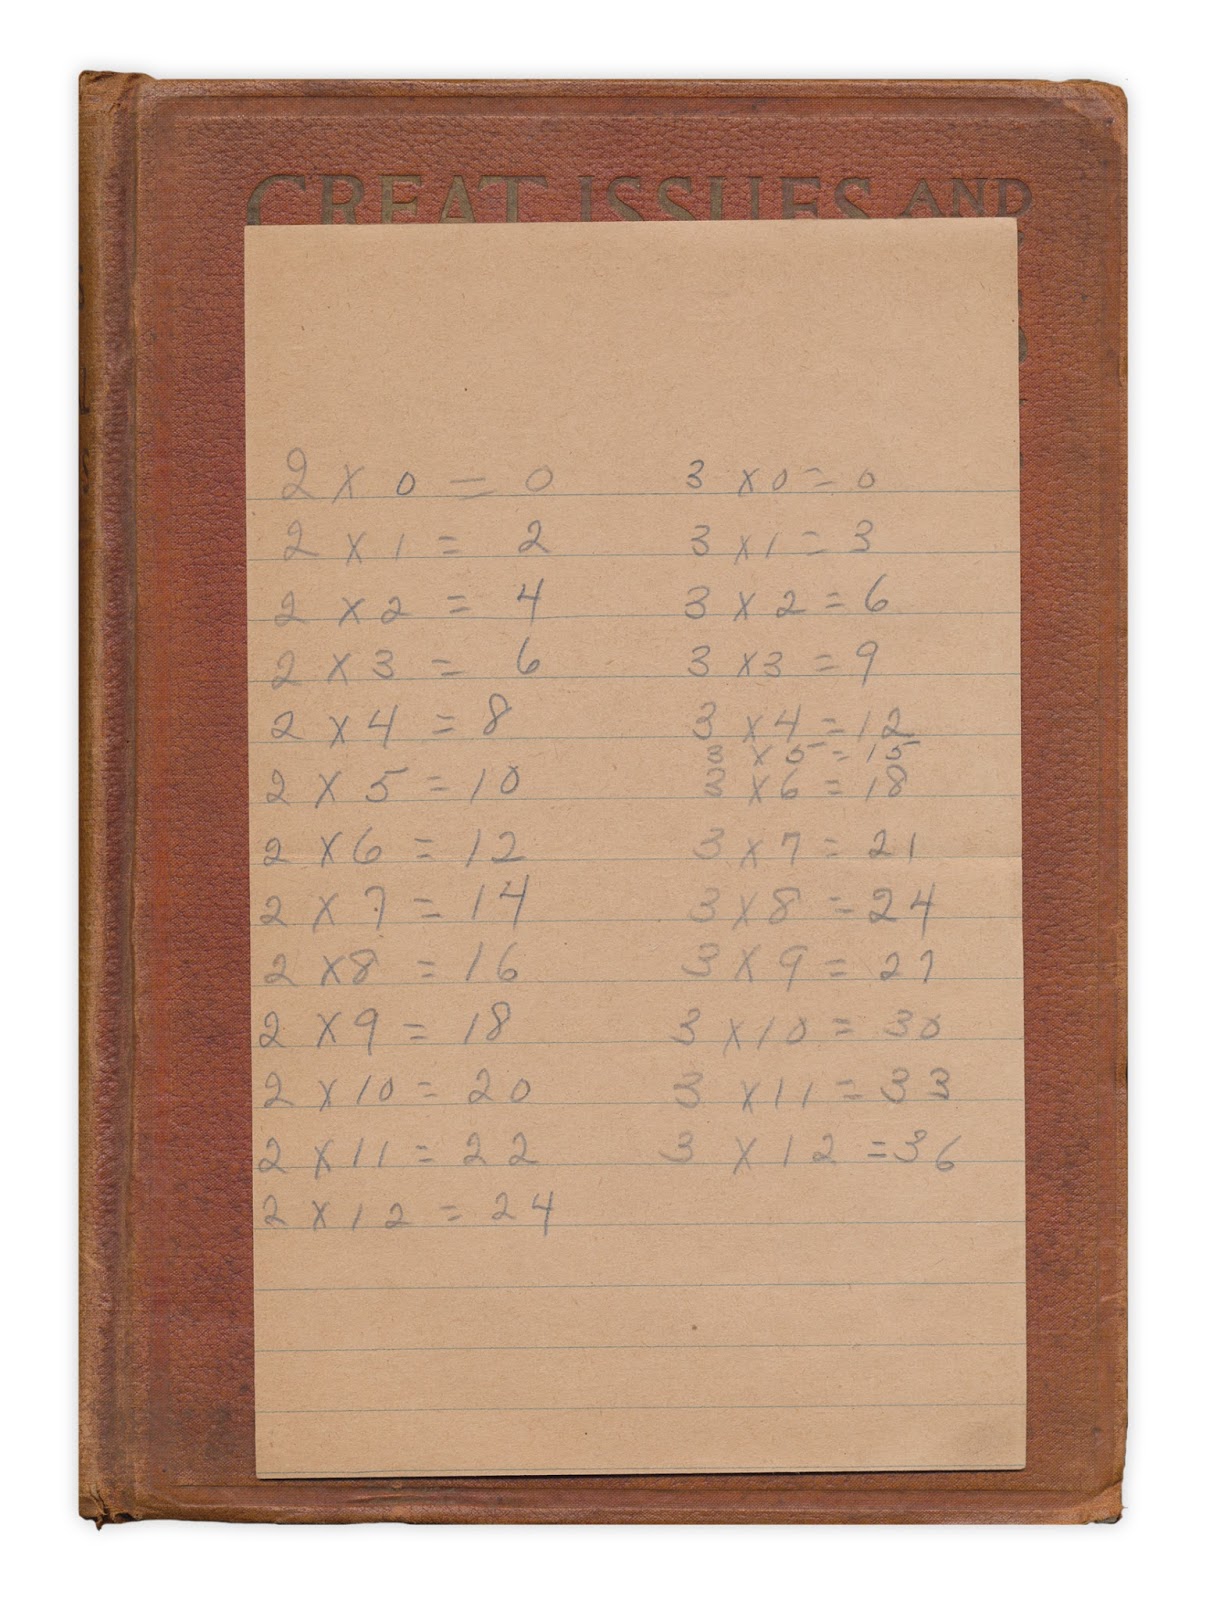 GREAT ISSUES AND
2 x 0 = 0
2 x 1 = 2
2 x 2 = 4
2 x 3 = 6
2 x 4 = 8
2 x 5 = 10
2 x 6 = 12
2 x 7 = 14
2 x 8 = 16
2 x 9 = 18
2 x 10 = 20
2 x 11 = 22
2 x 12 = 24
3 x 0 = 0
3 x 1 = 3
3 x 2 = 6
3 x 3 = 9
3 x 4 = 12
3 x 5 = 15
3 x 6 = 18
3 x 7 = 21
3 x 8 = 24
3 x 9 = 27
3 x 10 = 30
3 x 11 = 33
3 x 12 = 36